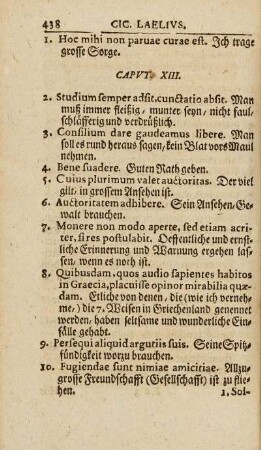 438 CIC. LAELIVS.
1. Hoc mihi non paruae curae est. Ich trage
grosse Sorge.
CAPVT. XIII.
2. Studium semper adsit, cunctatio absit. Man
muß immer fleißig, munter seyn, nicht faul,
schläfferig und verdrüßlich.
3. Consilium dare gaudeamus libere. Man
soll es rund heraus sagen, kein Blat vors Maul
nehmen.
4. Bene suadere. Guten Rath geben.
5. Cuius plurimum valet auctoritas. Der viel
gilt, in grossem Ansehen ist.
6. Auctoritatem adhibere. Sein Ansehen, Ge-
walt brauchen.
7. Monere non modo aperte, sed etiam acri-
ter, si res postulabit. Oeffentliche und ernst-
liche Erinnerung und Warnung ergehen las-
sen, wenn es noch ist.
8. Quibusdam, quos audio sapientes habitos
in Graecia, placuisse opinor mirabilia quæ-
dam. Etliche von denen, die (wie ich verneh-
me,) die 7. Weisen in Griechenland genennet
werden, haben seltsame und wunderliche Ein-
fälle gehabt.
9. Persequi aliquid argutiis suis. Seine Spitz-
fündigkeit worzu brauchen.
10. Fugiendae sunt nimiae amicitiae. Allzu-
grosse Freundschafft (Gesellschafft) ist zu flie-
hen.
1. Sol-